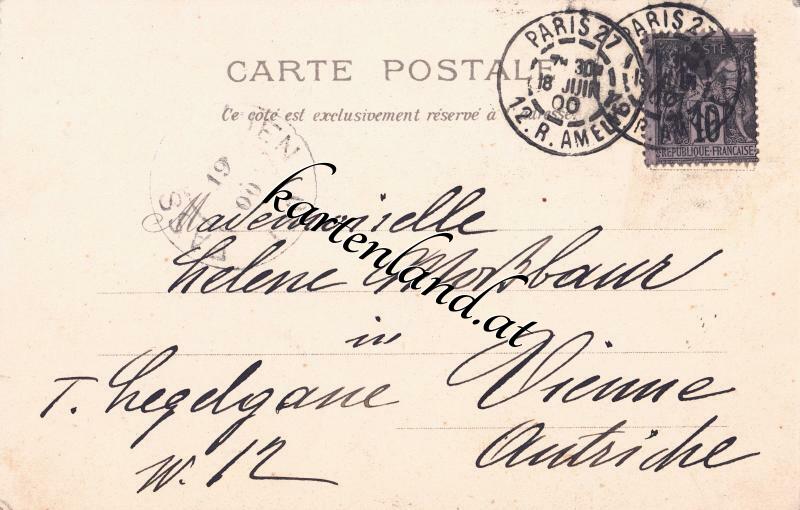 CARTE POSTALE
Ce côté est exclusivement réservé à l'adresse
PARIS 27
7M 30M
18 JUIN
00
12. R. AMELOT
PARIS 27
POSTE
10
REPUBLIQUE FRANÇAISE
WIEN
19
00
kartenland.at
Mademoiselle
Helene Moßbaur
in
Vienne
I. Hegelgasse
Autriche
N. 12